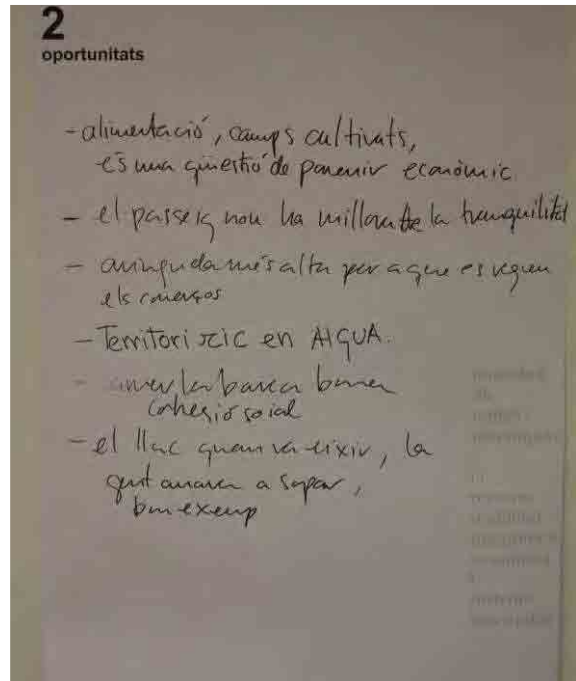 2
oportunitats
- alimentació, camps cultivats,
és una qüestió de porvenir econòmic.
- el passeig nou ha millorat la tranquilitat
- avinguda més alta per a que es veguen
els
- Territori ric en AIGUA.
- la barca bona
cohesió social
- el llac quan va eixir, la
gent anava a sopar,
bon exemp